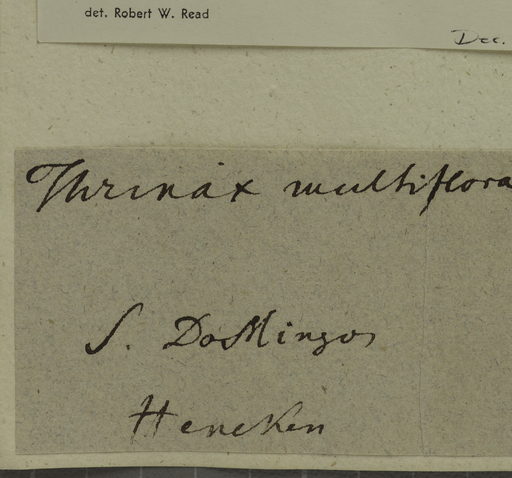 det. Robert W. Read
Dec.
Thrinax multiflora
S. DoMingos
Heneken